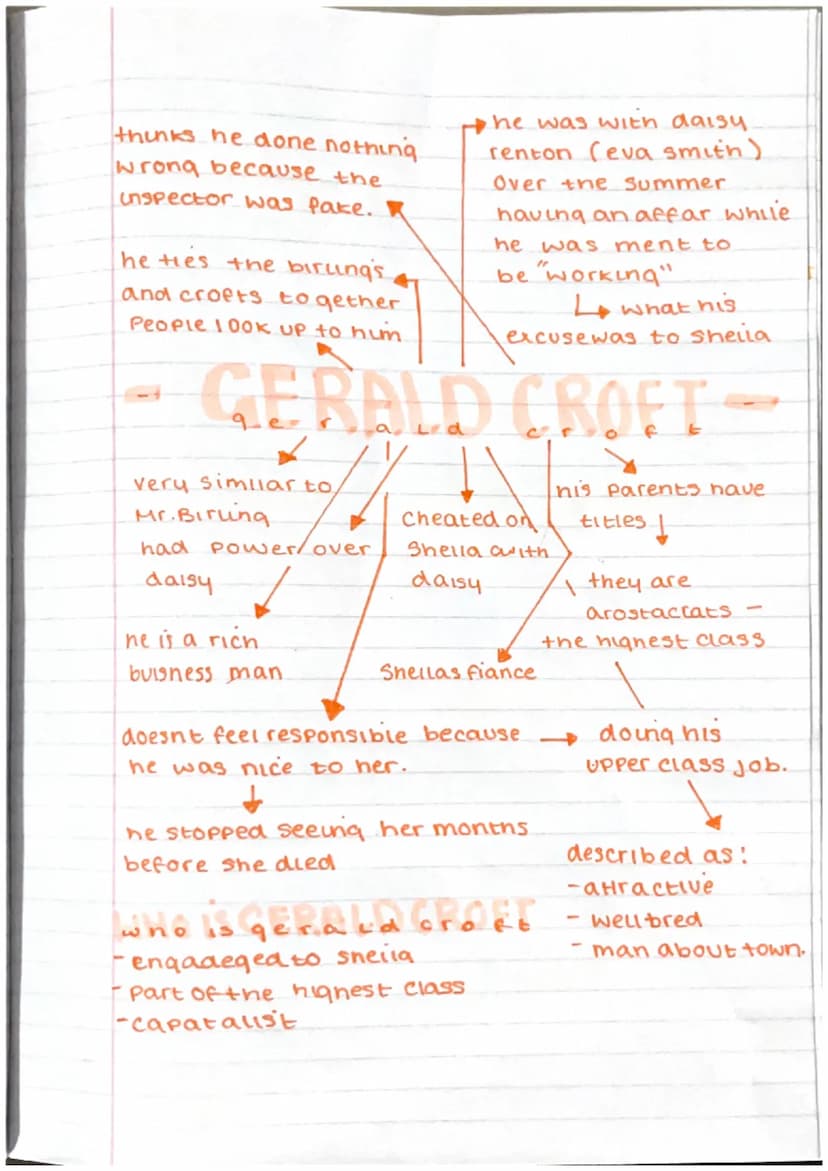 thinks he done nothing
wrong because the
inspector was fake.
he was with daisy
renton (eva smith)
over the summer
having an affar while
he was ment to
be "working"
what his
excuse was to sheila
he ties the birling's
and crofts together
People look up to him
- GERALD CROFT -
gerald croft
very similar to
Mr. Birling
had power over
daisy
cheated on
Sheila with
daisy
his parents have
titles
they are
arostaccrats -
the highest class
he is a rich
buisness man
Sheilas fiance
doesnt feel responsible because
he was nice to her.
doing his
upper class job.
he stopped seeing her months
before she died
described as:
- attractive
- well bred
- man about town.
WHO iS GERALD CROFT
who is gerald croft
- engadeged to sheila
- part of the highest class
- capatalist